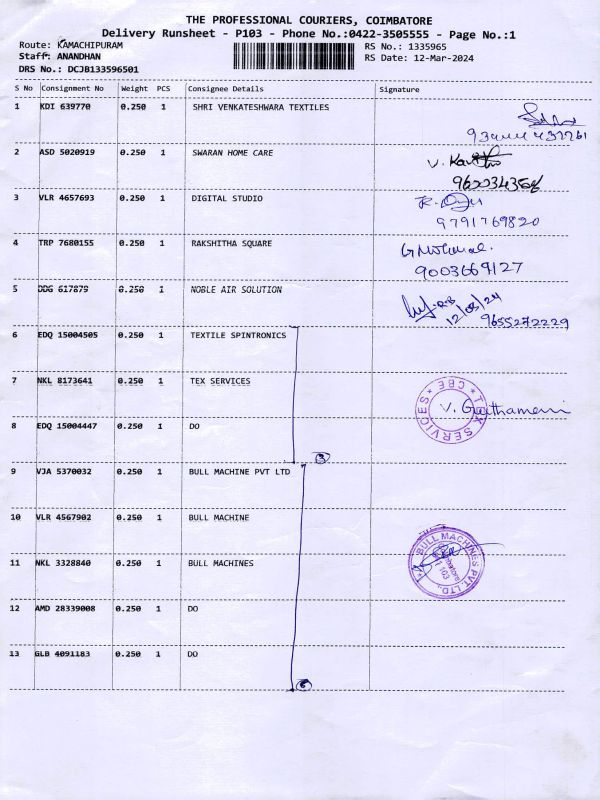 THE PROFESSIONAL COURIERS, COIMBATORE
Delivery Runsheet - P103 - Phone No.:0422-3505555 - Page No.:1
Route: KAMACHIPURAM
RS No.: 1335965
Staff: ANANDHAN
RS Date: 12-Mar-2024
DRS No.: DCJB133596501
S No Consignment No Weight PCS Consignee Details Signature
1 KDI 639770 0.250 1 SHRI VENKATESHWARA TEXTILES
2 ASD 5020919 0.250 1 SWARAN HOME CARE
V.
3 VLR 4657693 0.250 1 DIGITAL STUDIO
9791769820
4 TRP 7680155 0.250 1 RAKSHITHA SQUARE
9003669127
5 DDG 617879 0.250 1 NOBLE AIR SOLUTION
12/03/24 9655272229
6 EDQ 15004505 0.250 1 TEXTILE SPINTRONICS
7 NKL 8173641 0.250 1 TEX SERVICES
TEX SERVICES * CBE *
V.
8 EDQ 15004447 0.250 1 DO
3
9 VJA 5370032 0.250 1 BULL MACHINE PVT LTD
10 VLR 4567902 0.250 1 BULL MACHINE
BULL MACHINES PVT. LTD.
11 NKL 3328840 0.250 1 BULL MACHINES
12 AMD 28339008 0.250 1 DO
13 GLB 4091183 0.250 1 DO